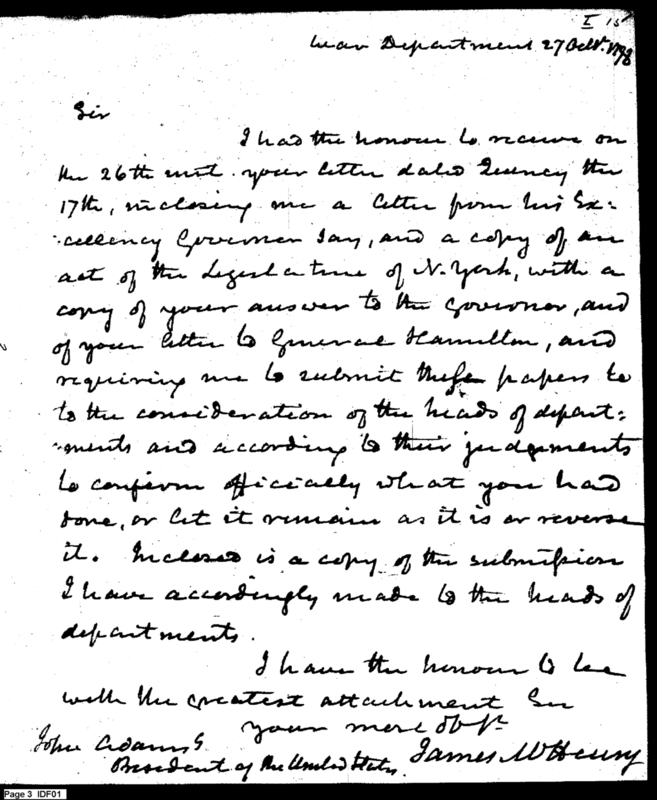 I 15
War Department 27 Octr. 1798
Sir
I had the honour to receive on
the 26th inst. your letter dated Quincy the
17th, inclosing me a letter from his Ex=
=cellency Governor Jay, and a copy of an
act of the Legislature of N. York, with a
copy of your answer to the Governor, and
of your letter to General Hamilton, and
requiring me to submit these papers to
to the consideration of the heads of depart=
=ments and according to their judgements
to confirm officially what you had
done, or let it remain as it is or reverse
it. Inclosed is a copy of the submission
I have accordingly made to the heads of
departments.
I have the honour to be
with the greatest attachment Sir
your most obt
John Adams
President of the United States. James McHenry
Page 3 IDF01